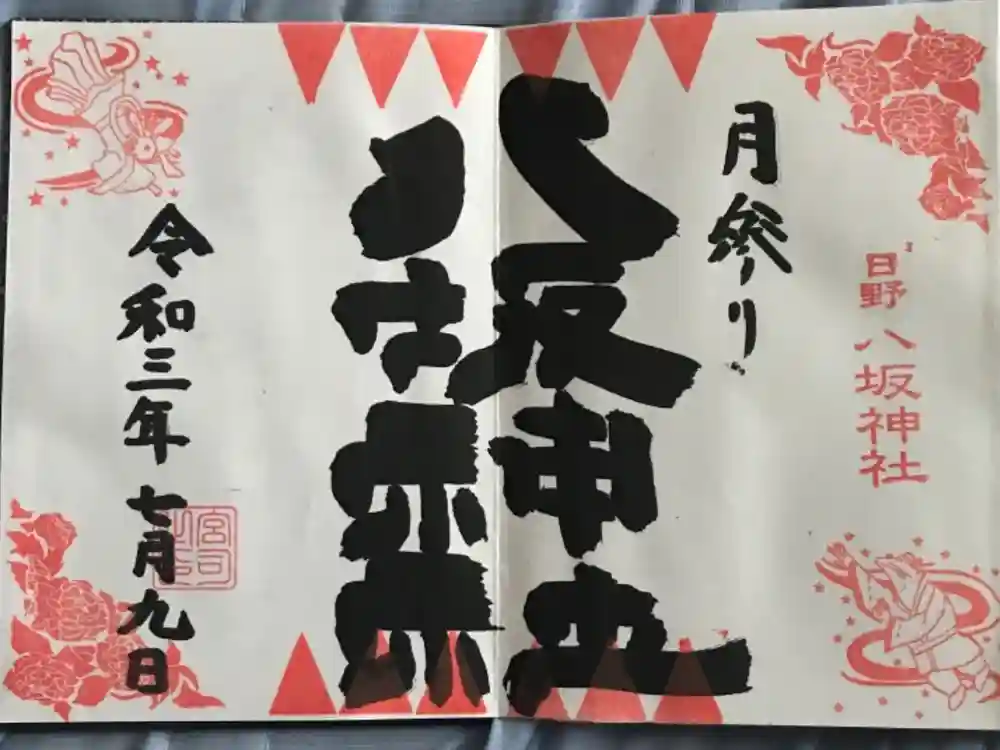 日野八坂神社
月参り
八坂神社
令和三年七月九日
宮司